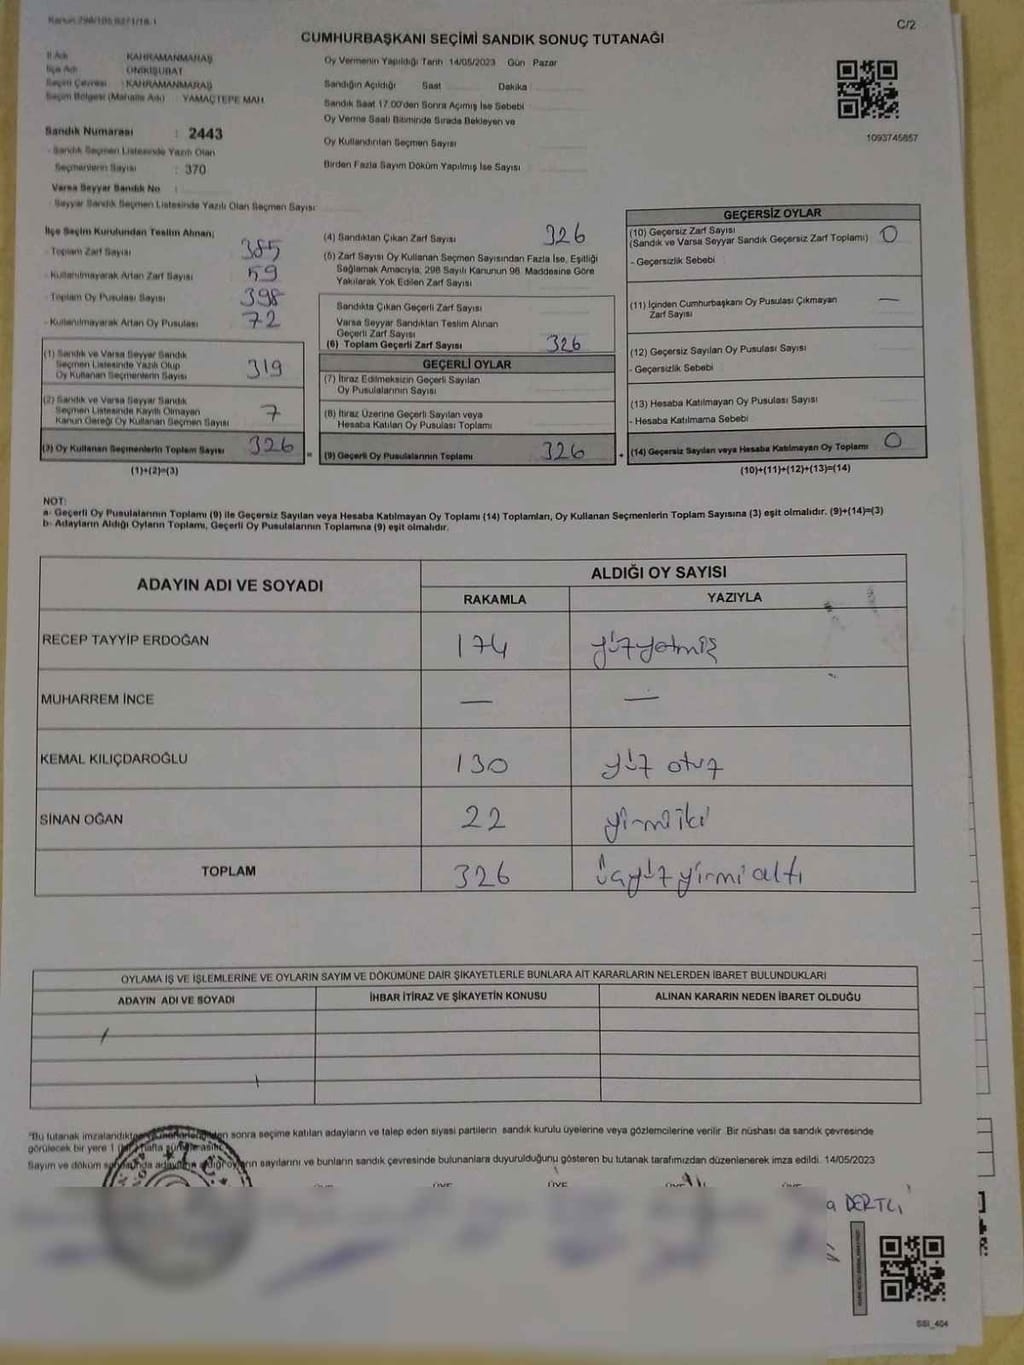 Kanun 298/105,6271/18-1
C/2
CUMHURBAŞKANI SEÇİMİ SANDIK SONUÇ TUTANAĞI
İl Adı KAHRAMANMARAŞ
İlçe Adı ONİKİŞUBAT
Seçim Çevresi : KAHRAMANMARAŞ
Seçim Bölgesi (Mahalle Adı) : YAMAÇTEPE MAH.
Sandık Numarası : 2443
- Sandık Seçmen Listesinde Yazılı Olan
Seçmenlerin Sayısı : 370
Varsa Seyyar Sandık No :
- Seyyar Sandık Seçmen Listesinde Yazılı Olan Seçmen Sayısı:
Oy Vermenin Yapıldığı Tarih 14/05/2023 Gün Pazar
Sandığın Açıldığı Saat Dakika
Sandık Saat 17.00'den Sonra Açılmış İse Sebebi
Oy Verme Saati Bitiminde Sırada Bekleyen ve
Oy Kullandırılan Seçmen Sayısı
Birden Fazla Sayım Döküm Yapılmış İse Sayısı
1093745857
İlçe Seçim Kurulundan Teslim Alınan;
- Toplam Zarf Sayısı 385
- Kullanılmayarak Artan Zarf Sayısı 59
- Toplam Oy Pusulası Sayısı 398
- Kullanılmayarak Artan Oy Pusulası 72
(1) Sandık ve Varsa Seyyar Sandık
Seçmen Listesinde Yazılı Olup
Oy Kullanan Seçmenlerin Sayısı 319
(2) Sandık ve Varsa Seyyar Sandık
Seçmen Listesinde Kayıtlı Olmayan
Kanun Gereği Oy Kullanan Seçmen Sayısı 7
(3) Oy Kullanan Seçmenlerin Toplam Sayısı 326
(1)+(2)=(3)
(4) Sandıktan Çıkan Zarf Sayısı 326
(5) Zarf Sayısı Oy Kullanan Seçmen Sayısından Fazla İse, Eşitliği
Sağlamak Amacıyla, 298 Sayılı Kanunun 98. Maddesine Göre
Yakılarak Yok Edilen Zarf Sayısı
Sandıkta Çıkan Geçerli Zarf Sayısı
Varsa Seyyar Sandıktan Teslim Alınan
Geçerli Zarf Sayısı
(6) Toplam Geçerli Zarf Sayısı 326
GEÇERLİ OYLAR
(7) İtiraz Edilmeksizin Geçerli Sayılan
Oy Pusulalarının Sayısı
(8) İtiraz Üzerine Geçerli Sayılan veya
Hesaba Katılan Oy Pusulası Toplamı
= (9) Geçerli Oy Pusulalarının Toplamı 326 +
GEÇERSİZ OYLAR
(10) Geçersiz Zarf Sayısı
(Sandık ve Varsa Seyyar Sandık Geçersiz Zarf Toplamı) 0
- Geçersizlik Sebebi
(11) İçinden Cumhurbaşkanı Oy Pusulası Çıkmayan
Zarf Sayısı —
(12) Geçersiz Sayılan Oy Pusulası Sayısı
- Geçersizlik Sebebi
(13) Hesaba Katılmayan Oy Pusulası Sayısı
- Hesaba Katılmama Sebebi
(14) Geçersiz Sayılan veya Hesaba Katılmayan Oy Toplamı 0
(10)+(11)+(12)+(13)=(14)
NOT:
a- Geçerli Oy Pusulalarının Toplamı (9) ile Geçersiz Sayılan veya Hesaba Katılmayan Oy Toplamı (14) Toplamları, Oy Kullanan Seçmenlerin Toplam Sayısına (3) eşit olmalıdır. (9)+(14)=(3)
b- Adayların Aldığı Oyların Toplamı, Geçerli Oy Pusulalarının Toplamına (9) eşit olmalıdır.
ADAYIN ADI VE SOYADI ALDIĞI OY SAYISI
RAKAMLA YAZIYLA
RECEP TAYYİP ERDOĞAN 174 yüzyetmiş
MUHARREM İNCE — —
KEMAL KILIÇDAROĞLU 130 yüz otuz
SİNAN OĞAN 22 yirmi iki
TOPLAM 326 üçyüz yirmi altı
OYLAMA İŞ VE İŞLEMLERİNE VE OYLARIN SAYIM VE DÖKÜMÜNE DAİR ŞİKAYETLERLE BUNLARA AİT KARARLARIN NELERDEN İBARET BULUNDUKLARI
ADAYIN ADI VE SOYADI İHBAR İTİRAZ VE ŞİKAYETİN KONUSU ALINAN KARARIN NEDEN İBARET OLDUĞU
"Bu tutanak imzalandıktan sonra seçime katılan adayların ve talep eden siyasi partilerin sandık kurulu üyelerine veya gözlemcilerine verilir. Bir nüshası da sandık çevresinde
görülecek bir yere 1 hafta asılır.
Sayım ve döküm oyların sayılarını ve bunların sandık çevresinde bulunanlara duyurulduğunu gösteren bu tutanak tarafımızdan düzenlenerek imza edildi. 14/05/2023
ÜYE ÜYE ÜYE ÜYE
DERTLİ
SSI_404